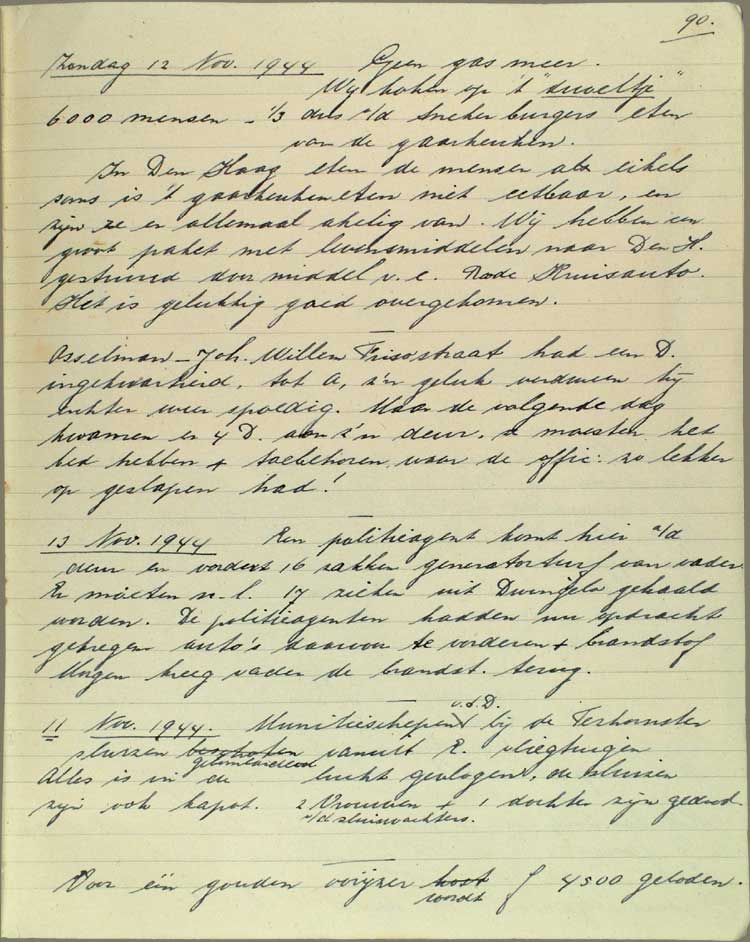 90.
Zondag 12 Nov. 1944 Geen gas meer.
Wij koken op 't "duveltje"
6000 mensen - 1/3 dus v/d Sneker burgers eten
van de gaarkeuken.
In Den Haag eten de mensen als eikels
soms is 't gaarkeukeneten niet eetbaar, en
zijn ze er allemaal akelig van. Wij hebben een
groot paket met levensmiddelen naar Den H.
gestuurd door middel v. e. Rode Kruisauto.
Het is gelukkig goed overgekomen.
Osselman - Joh. Willem Frisostraat had een D.
ingekwartierd, tot A, z'n geluk verdween hij
echter weer spoedig. Maar de volgende dag
kwamen er 4 D. aan z'n deur, ze moesten het
bed hebben + toebehoren waar de offic: zo lekker
op geslapen had!
13 Nov. 1944 Een politieagent komt hier a/d
deur en vordert 16 zakken generatorturf van vader
Er moeten n.l. 17 zieken uit Dwingelo gehaald
worden. De politieagenten hadden nu opdracht
gekregen auto's daarvoor te vorderen + brandstof
Morgen kreeg vader de brandst. terug.
11 Nov. 1944. Munitieschepen v.d D. bij de Terhornster
sluizen beschoten gebombardeerd vanuit E. vliegtuigen
Alles is in de lucht gevlogen, de sluizen
zijn ook kapot. 2 Vrouwen + 1 dochter zijn gedood.
v/d sluiswachters.
Voor één gouden oorijzer kost wordt f 4500 geboden.